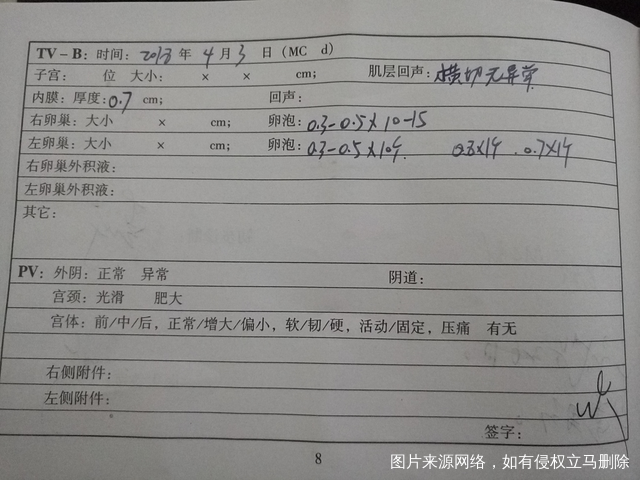 TV－B：时间：2018 年 4 月 3 日（MC d）
子宫： 位 大小： × × cm； 肌层回声：横切无异常
内膜：厚度：0.7 cm； 回声：
右卵巢：大小 × cm； 卵泡：0.3-0.5×10-15
左卵巢：大小 × cm； 卵泡：0.3-0.5×10个. 0.8×1个 . 0.7×1个
右卵巢外积液：
左卵巢外积液：
其它：
PV：外阴：正常 异常 阴道：
宫颈：光滑 肥大
宫体：前/中/后，正常/增大/偏小，软/韧/硬，活动/固定，压痛 有无
右侧附件：
左侧附件：
签字：
8
图片来源网络，如有侵权立马删除